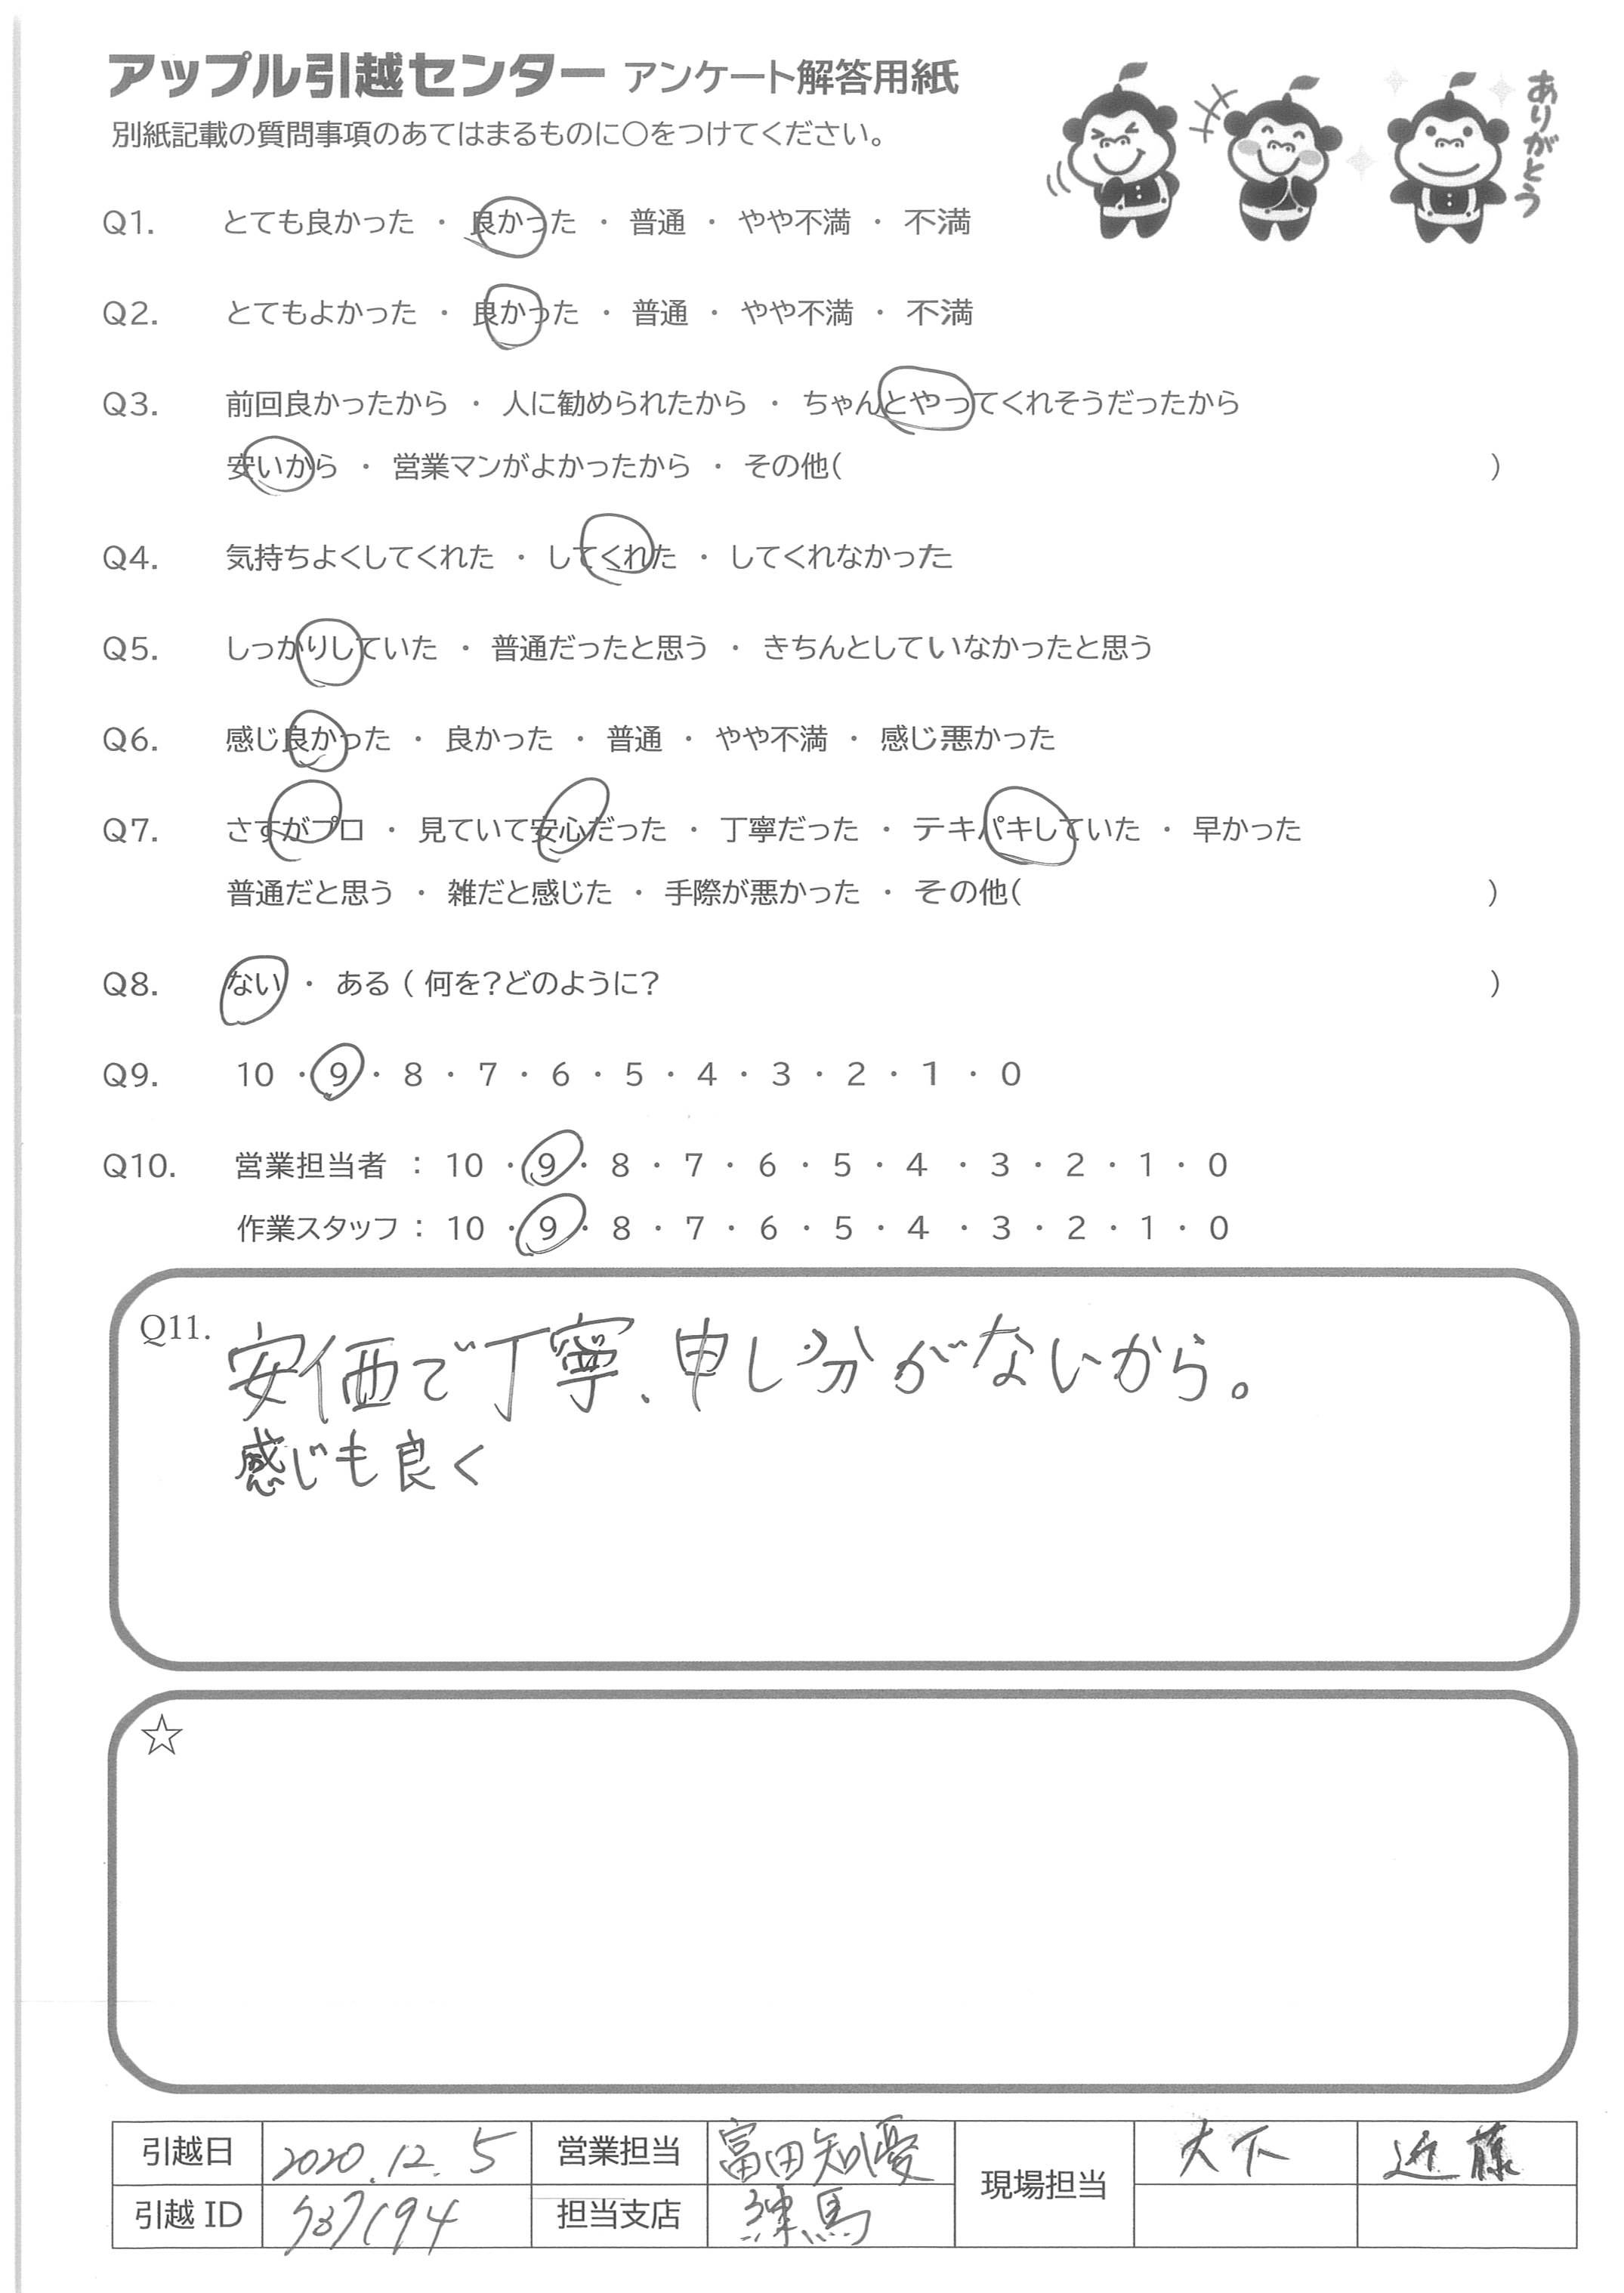 アップル引越センター アンケート解答用紙
別紙記載の質問事項のあてはまるものに○をつけてください。
ありがとう
Q1. とても良かった ・ 良かった ・ 普通 ・ やや不満 ・ 不満
Q2. とてもよかった ・ 良かった ・ 普通 ・ やや不満 ・ 不満
Q3. 前回良かったから ・ 人に勧められたから ・ ちゃんとやってくれそうだったから
安いから ・ 営業マンがよかったから ・ その他( )
Q4. 気持ちよくしてくれた ・ してくれた ・ してくれなかった
Q5. しっかりしていた ・ 普通だったと思う ・ きちんとしていなかったと思う
Q6. 感じ良かった ・ 良かった ・ 普通 ・ やや不満 ・ 感じ悪かった
Q7. さすがプロ ・ 見ていて安心だった ・ 丁寧だった ・ テキパキしていた ・ 早かった
普通だと思う ・ 雑だと感じた ・ 手際が悪かった ・ その他( )
Q8. ない ・ ある ( 何を?どのように? )
Q9. 10 ・ 9 ・ 8 ・ 7 ・ 6 ・ 5 ・ 4 ・ 3 ・ 2 ・ 1 ・ 0
Q10. 営業担当者 : 10 ・ 9 ・ 8 ・ 7 ・ 6 ・ 5 ・ 4 ・ 3 ・ 2 ・ 1 ・ 0
作業スタッフ : 10 ・ 9 ・ 8 ・ 7 ・ 6 ・ 5 ・ 4 ・ 3 ・ 2 ・ 1 ・ 0
Q11. 安価で丁寧、申し分がないから。
感じも良く
☆
引越日 2020.12.5 営業担当 富田知優 現場担当 大下 近藤
引越 ID 担当支店 練馬